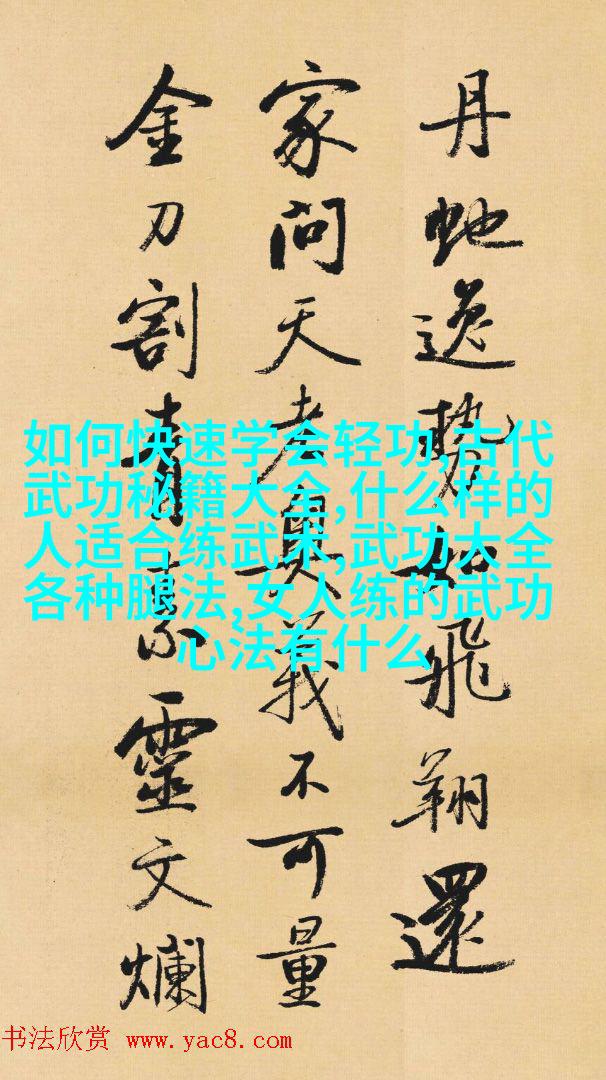 丹虵逸勢如飛翔還
家問天老奧義不可量
金刀割青素靈文爛
如何快速学会轻功,古代
武功秘籍大全,什么样的
人适合练武术,武功大全
各种腿法,女人练的武功
心法有什么
书法欣赏 www.yac8.com